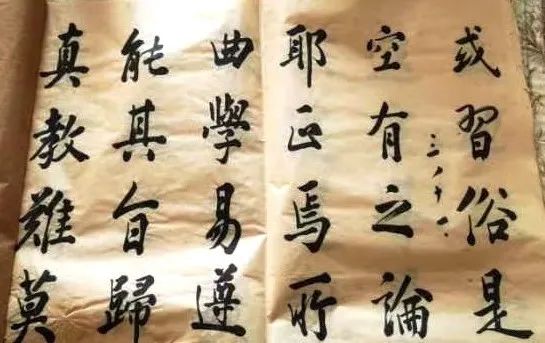 真教難莫
能其旨歸
曲學易遵
耶正焉所
空有之論
或習俗是